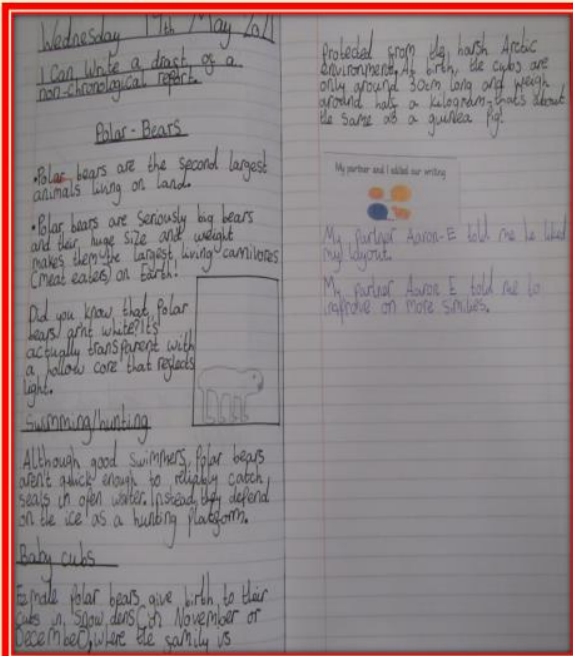 Wednesday 19th May 2021
I can write a draft of a
non-chronological report.
Polar-Bears
•Polar bears are the second largest
animals living on land.
•Polar bears are seriously big bears
and their huge size and weight
makes them the largest living carnivores
(meat eaters) on Earth!
Did you know that Polar
bears arnt white? It's
actually transparent with
a hollow core that reflects
light.
Swimming/hunting
Although good swimmers, Polar bears
aren't quick enough to reliably catch
seals in open water. Instead, they depend
on the ice as a hunting platform.
Baby cubs
Female Polar bears give birth to their
cubs in snow dens in November or
December, where the family is
Protected from the harsh Arctic
environment. At birth, the cubs are
only around 30cm long and weigh
around half a kilogram-that's about
the same as a guinea pig!
My partner and I edited our writing
My partner Aaron-E told me he liked
my layout.
My partner Aaron E told me to
improve on more similies.